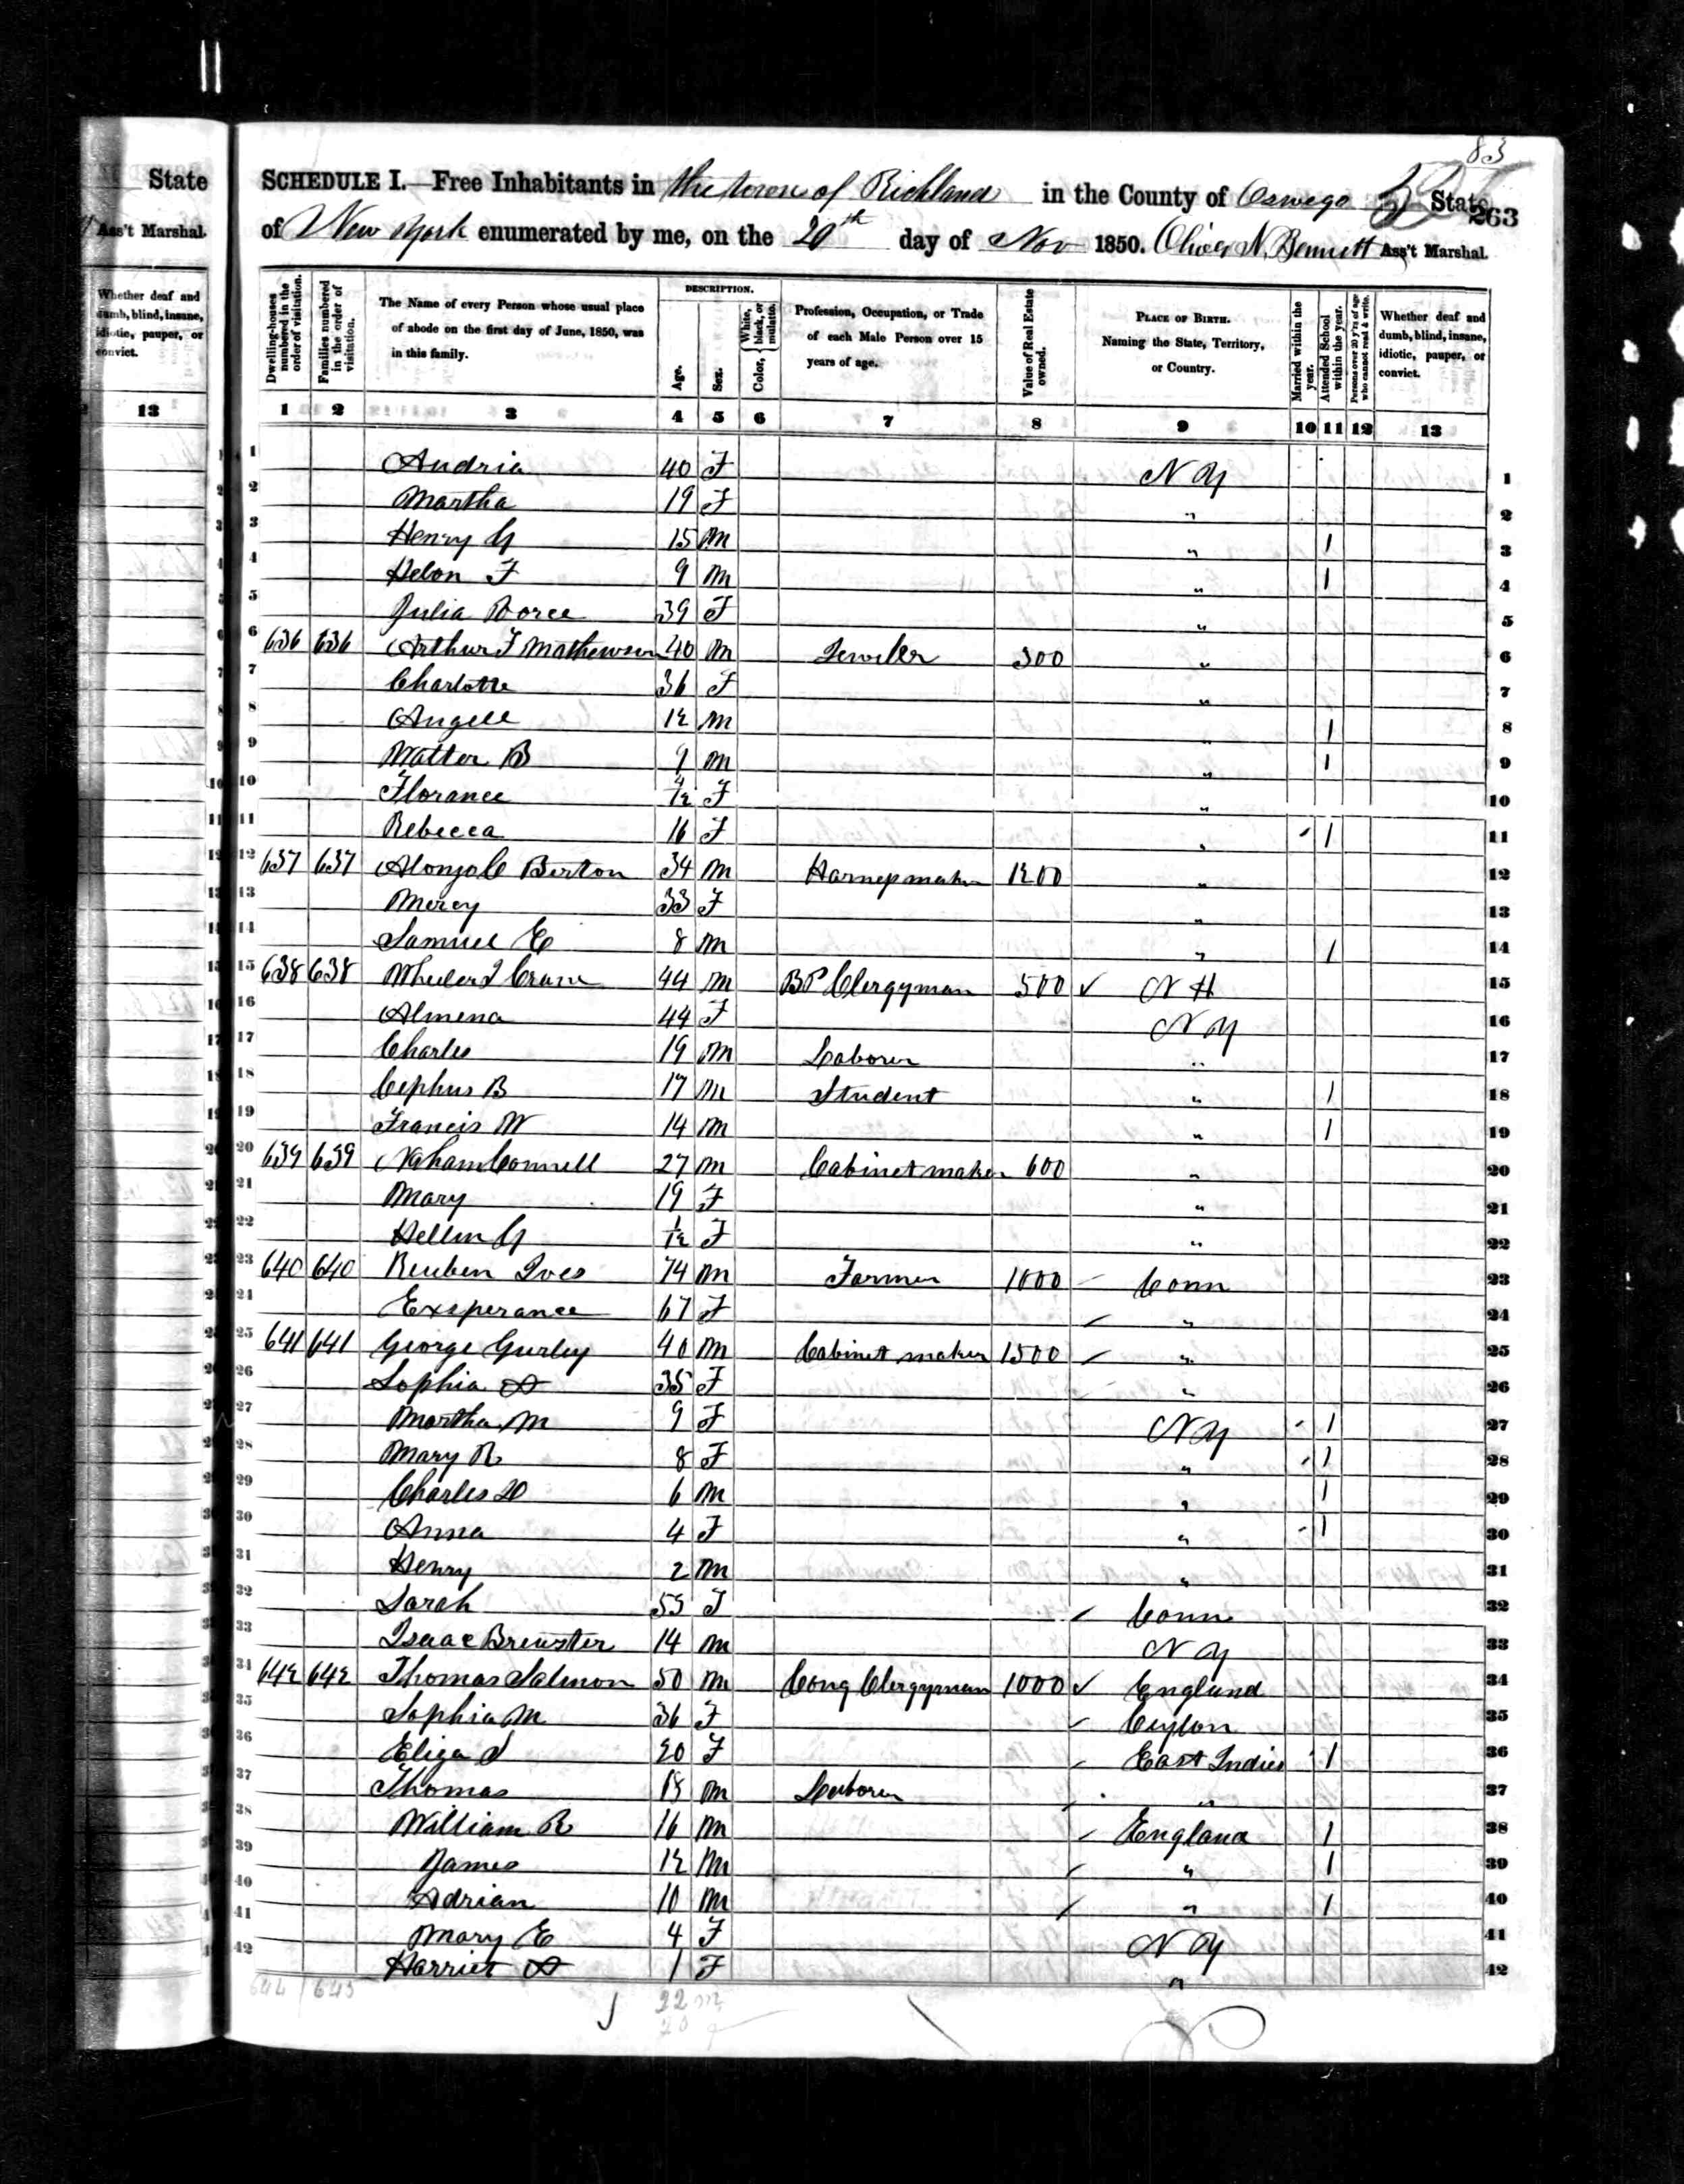 83
SCHEDULE I.—Free Inhabitants in the town of Richland in the County of Oswego State
263
of New York enumerated by me, on the 20th day of Nov 1850. Oliver N. Bennett Ass't Marshal.
State
Ass't Marshal.
Whether deaf and dumb, blind, insane, idiotic, pauper, or convict.
13
Dwelling-houses numbered in the order of visitation.
Families numbered in the order of visitation.
The Name of every Person whose usual place of abode on the first day of June, 1850, was in this family.
DESCRIPTION.
Age.
Sex.
Color, { White, black, or mulatto.
Profession, Occupation, or Trade of each Male Person over 15 years of age.
Value of Real Estate owned.
PLACE OF BIRTH. Naming the State, Territory, or Country.
Married within the year.
Attended School within the year.
Persons over 20 y'rs of age who cannot read & write.
Whether deaf and dumb, blind, insane, idiotic, pauper, or convict.
1 2 3 4 5 6 7 8 9 10 11 12 13
1 Andria 40 F N Y 1
2 Martha 19 F " 2
3 Henry G 15 M " 1 3
4 Helon F 9 M " 1 4
5 Julia Dorce 39 F " 5
6 636 636 Arthur F Mathewson 40 M Jeweler 300 " 6
7 Charlotte 36 F " 7
8 Angell 12 M " 1 8
9 Walter B 9 M " 1 9
10 Florance 4/12 F " 10
11 Rebecca 16 F " 1 11
12 637 637 Alonzo C Burton 34 M Harnessmaker 1200 " 12
13 Mercy 33 F " 13
14 Samuel E 8 M " 1 14
15 638 638 Wheeler J Crane 44 M BP Clergyman 500 ✓ N H 15
16 Almena 44 F N Y 16
17 Charles 19 M Laborer " 17
18 Cephus B 17 M Student " 1 18
19 Francis W 14 M " 1 19
20 639 639 Naham Connell 27 M Cabinet maker 600 " 20
21 Mary 19 F " 21
22 Hellen G 1/12 F " 22
23 640 640 Reuben Ives 74 M Farmer 1000 Conn 23
24 Exsperance 67 F " 24
25 641 641 George Gurley 40 M Cabinet maker 1500 " 25
26 Sophia A 35 F " 26
27 Martha M 9 F N Y 1 27
28 Mary R 8 F " 1 28
29 Charles D 6 M " 1 29
30 Anna 4 F " 1 30
31 Henry 2 M " 31
32 Sarah 55 F Conn 32
33 Isaac Brewster 14 M N Y 33
34 642 642 Thomas Salmon 50 M Cong Clergyman 1000 ✓ England 34
35 Sophia M 36 F Ceylon 35
36 Eliza S 20 F East Indies 1 36
37 Thomas 18 M Laborer " 37
38 William R 16 M England 1 38
39 James 12 M " 1 39
40 Adrian 10 M " 1 40
41 Mary E 4 F N Y 41
42 Harriet A 1 F " 42
644 645
22 m
20 f